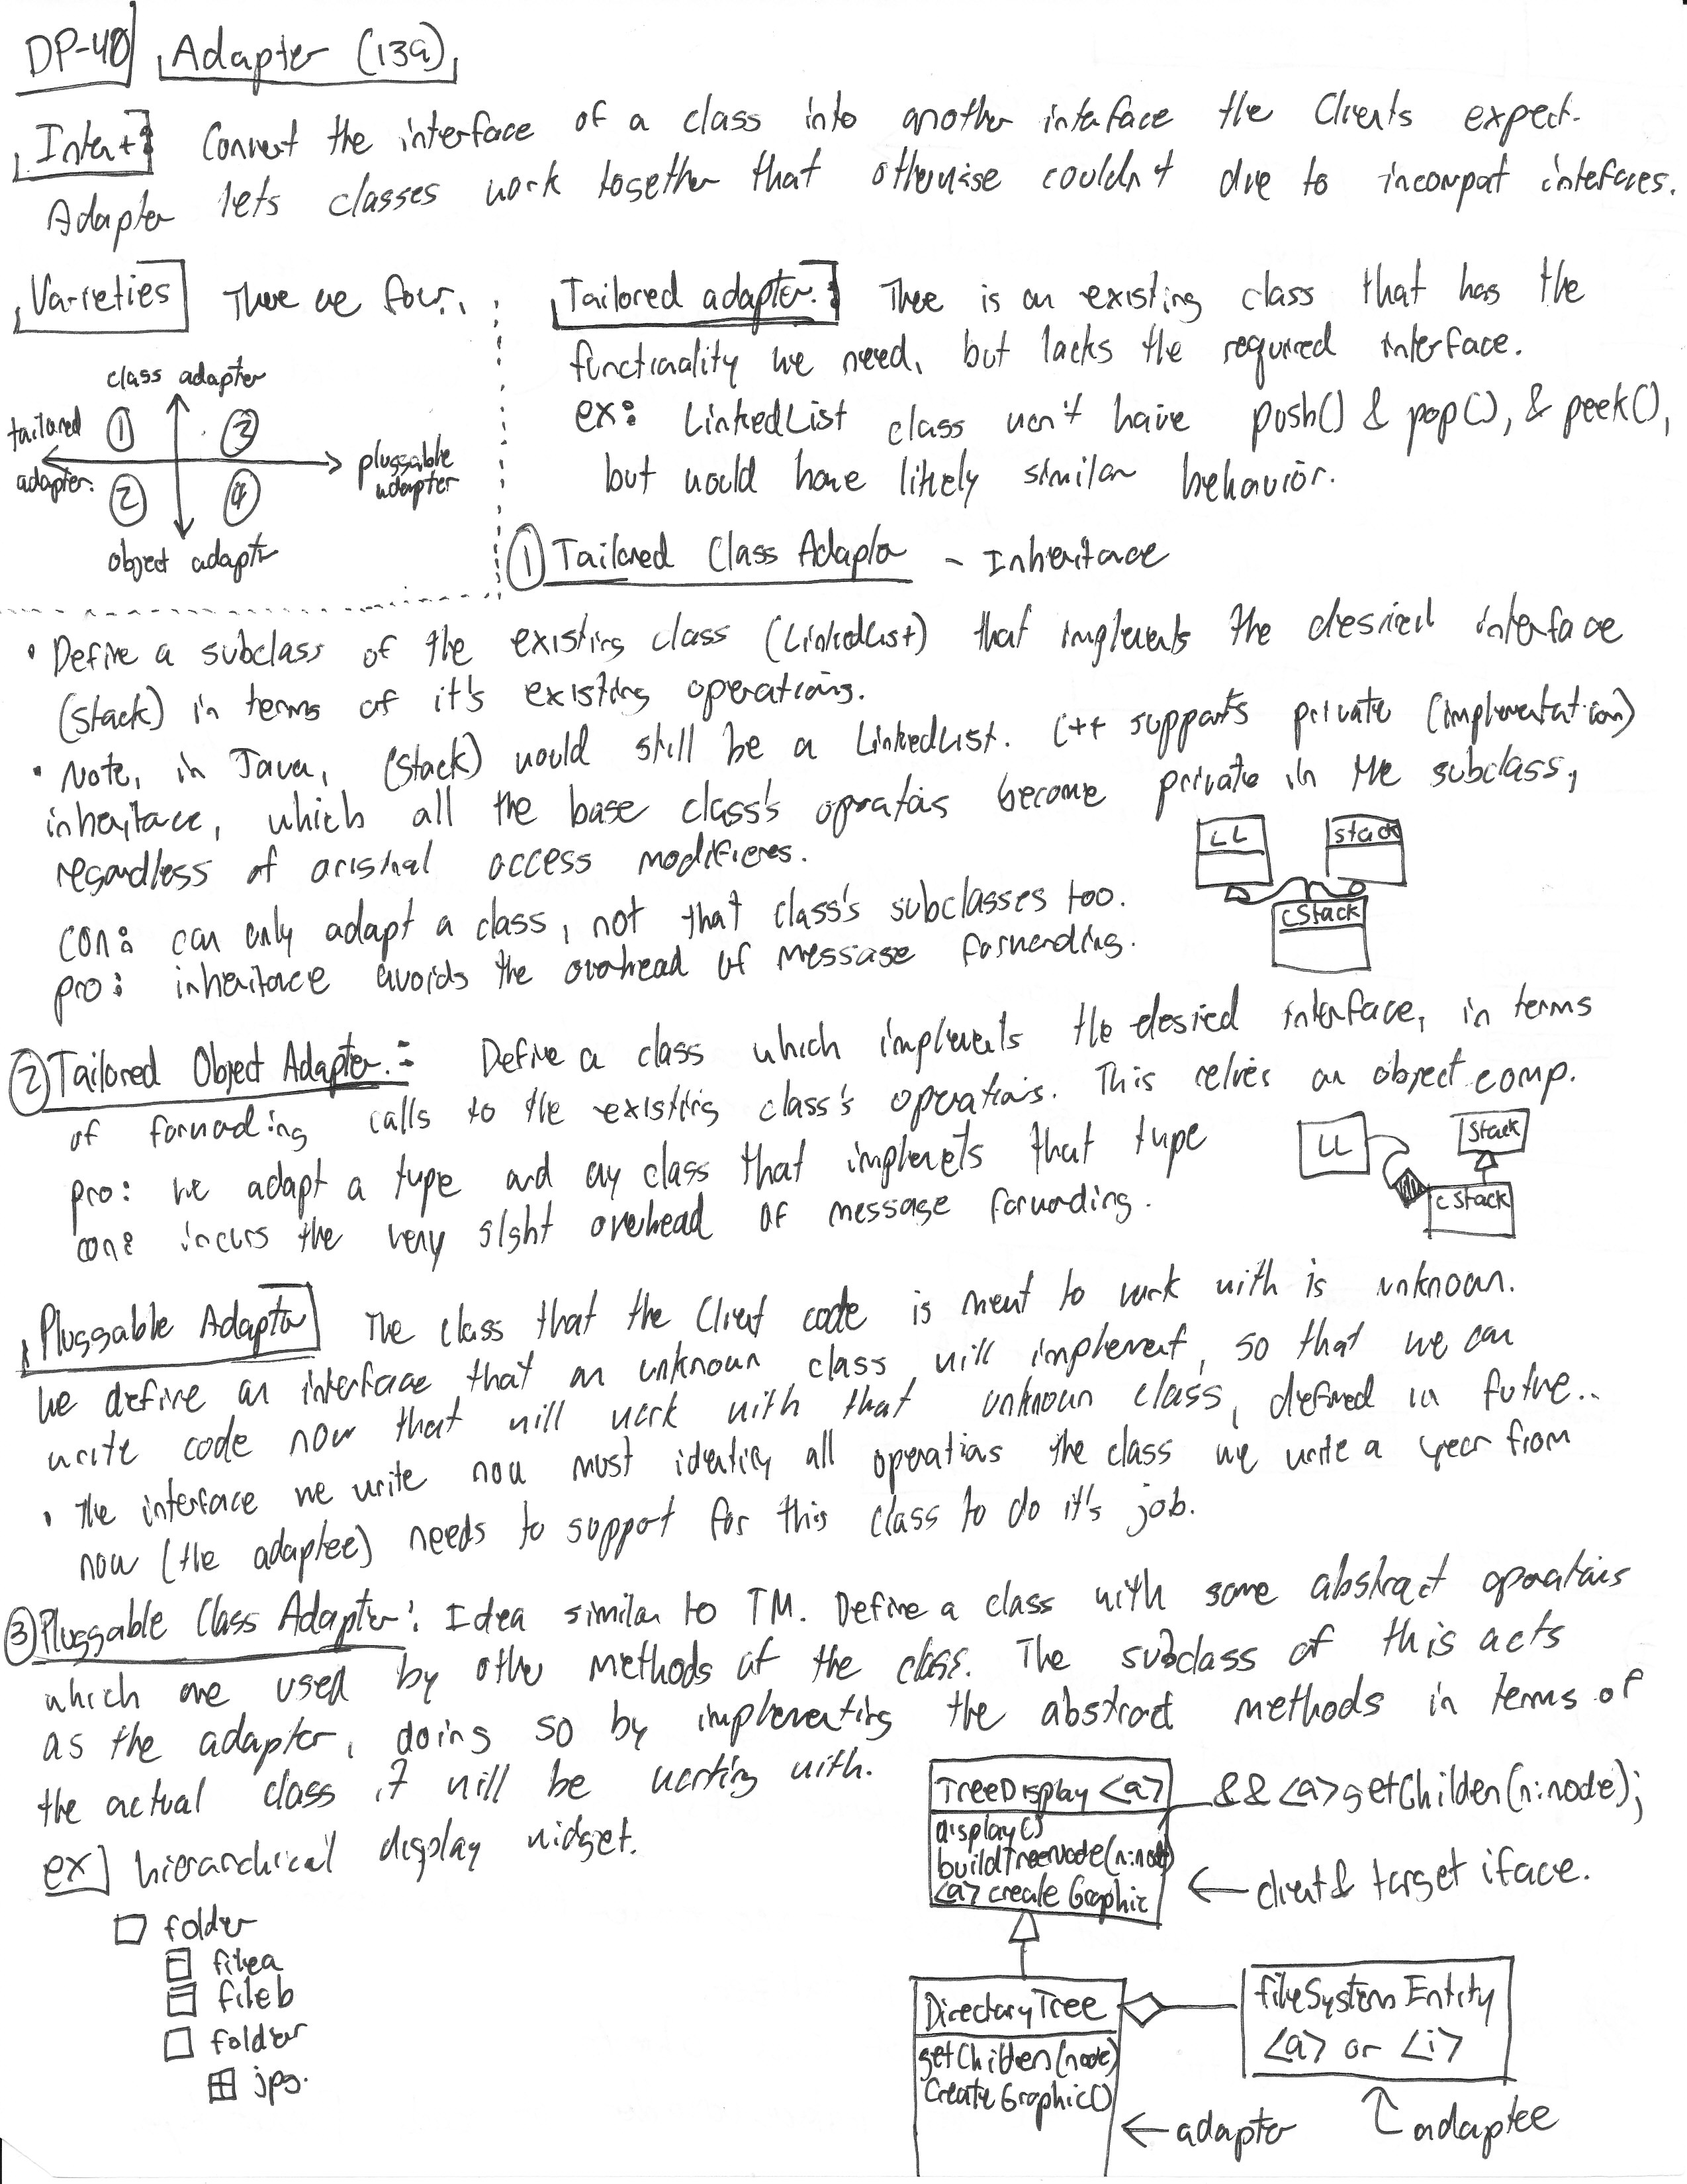 DP-40 Adapter (139)
Intent: Convert the interface of a class into another interface the Clients expect.
Adapter lets classes work together that otherwise couldn't due to incompat interfaces.
Varieties There are four.
class adapter
tailored adapter.
① ③
pluggable adapter
② ④
object adapter
Tailored adapter: There is an existing class that has the
functionality we need, but lacks the required interface.
ex: LinkedList class won't have push() & pop(), & peek(),
but would have likely similar behavior.
① Tailored Class Adapter - Inheritance
• Define a subclass of the existing class (LinkedList) that implements the desired interface
(stack) in terms of it's existing operations.
• Note, in Java, (stack) would still be a LinkedList. C++ supports private (implementation)
inheritance, which all the base class's operations become private in the subclass,
regardless of original access modifieres.
con: can only adapt a class, not that class's subclasses too.
pro: inheritance avoids the overhead of message forwarding.
LL
stack
cStack
② Tailored Object Adapter: Define a class which implements the desired interface, in terms
of forwarding calls to the existing class's operations. This relies on object comp.
pro: we adapt a type and any class that implements that type
con: incurs the very slght overhead of message forwarding.
LL
Stack
cStack
Pluggable Adapter The class that the Client code is ment to work with is unknown.
We define an interface that an unknown class will implement, so that we can
write code now that will work with that unknown class, defined in future..
• The interface we write now must identify all operations the class we write a year from
now (the adaptee) needs to support for this class to do it's job.
③ Pluggable Class Adapter: Idea similar to TM. Define a class with some abstract operations
which are used by other methods of the class. The subclass of this acts
as the adapter, doing so by implementing the abstract methods in terms of
the actual class it will be working with.
ex] hierarchical display widget.
folder
filea
fileb
folder
jpg.
TreeDisplay <a>
display()
buildTreeNode(n:node)
<a> create Graphic
&& <a> getChilden(n:node);
← client & target iface.
DirectoryTree
getChilden(node)
Create Graphic()
← adapter
fileSystem Entity
<a> or <i>
adaptee